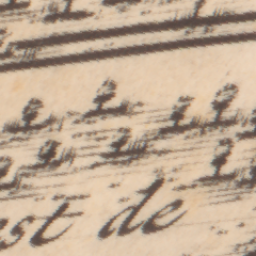 est de